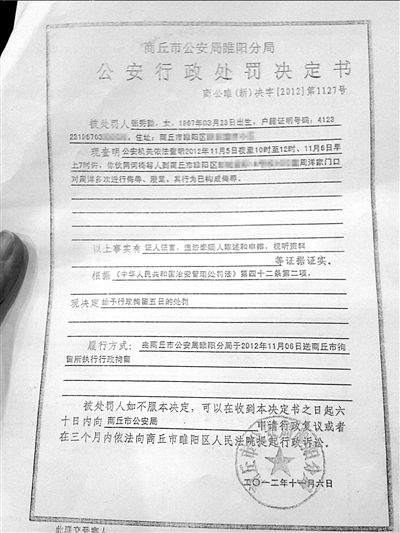 商丘市公安局睢阳分局
公安行政处罚决定书
商公睢(新)决字[2012]第1127号
被处罚人张秀勤,女,1967年03月23日出生,户籍证明号码:4123
23196703 ,住址:商丘市睢阳区
现查明公安机关依法查明2012年11月5日夜里10时至12时、11月6日早
上7时许,你伙同何德等人到商丘市睢阳区 周洋家门口
对周洋多次进行侮辱、谩骂,其行为已构成侮辱。
以上事实有 证人证言,违法嫌疑人陈述和申辩,视听资料
等证据证实。
根据 《中华人民共和国治安管理处罚法》第四十二条第二项,
现决定 给予行政拘留五日的处罚
履行方式: 由商丘市公安局睢阳分局于2012年11月06日送商丘市拘
留所执行行政拘留
被处罚人如不服本决定,可以在收到本决定书之日起六
十日内向 商丘市公安局 申请行政复议或者
在三个月内依法向商丘市睢阳区人民法院提起行政诉讼。
二〇一二年十一月六日